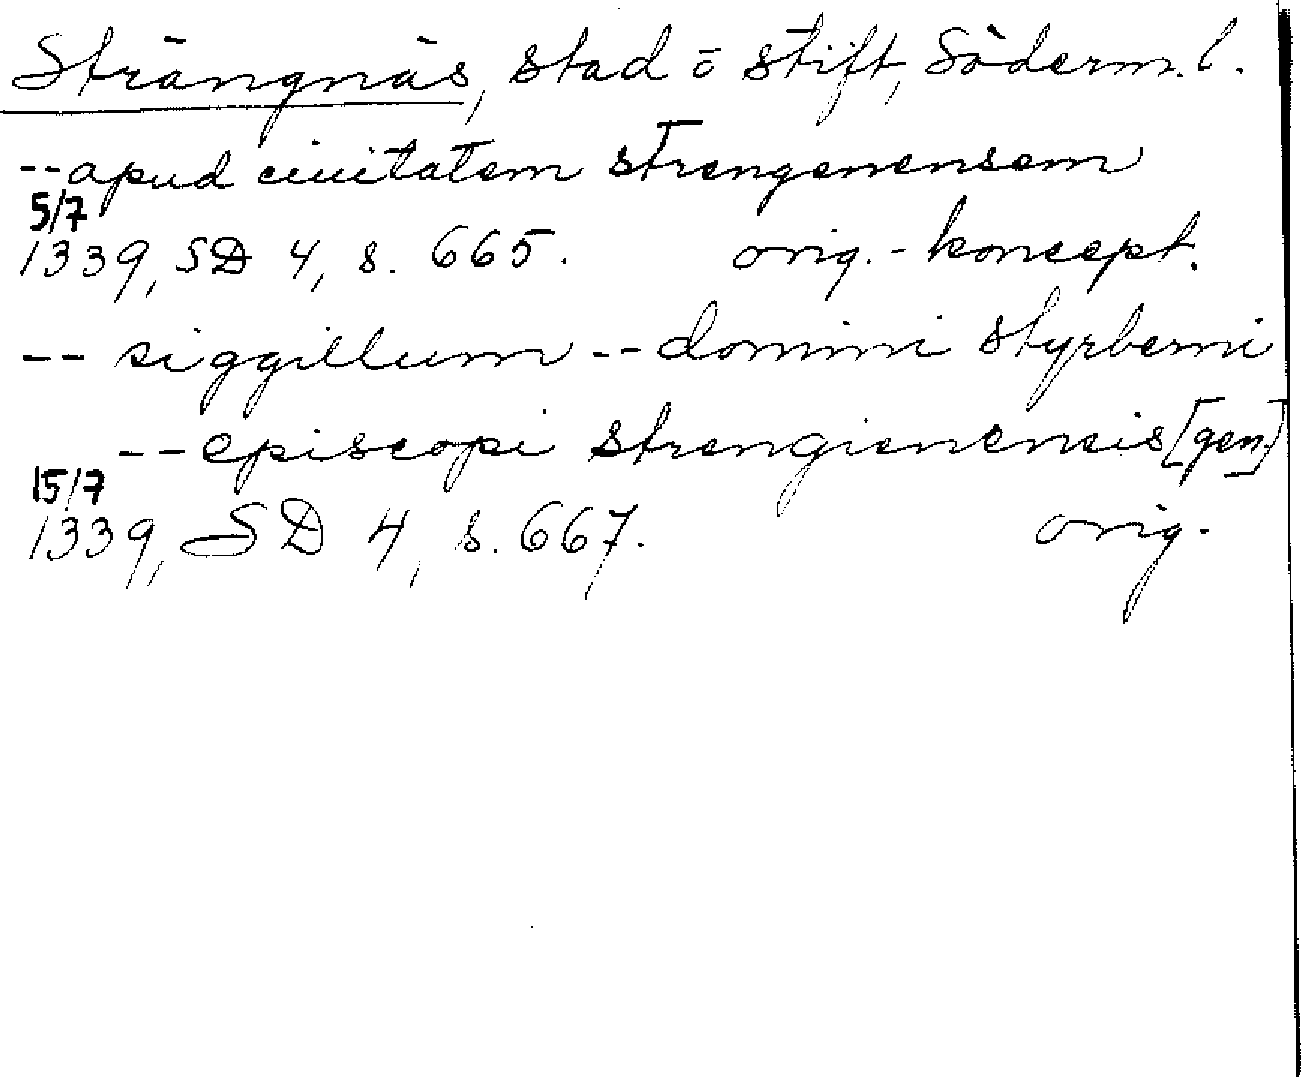 Strängnäs, stad o stift, Söderm. l.
--apud ciuitatem strengenensem
5/7
1339, SD 4, s. 665. orig.-koncept.
-- siggillum -- domini styrberni
--episcopi strengienencis [gen.]
15/7
1339, SD 4, s. 667. orig.